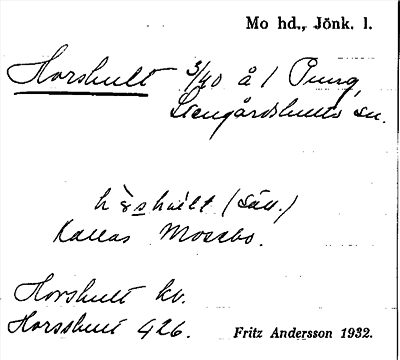 Mo hd., Jönk. l.
Horshult 3/40 å 1 Pung,
Stengårdshults sn.
(säll.)
kallas Mossebo.
Horshult kv.
Horsshult 426.
Fritz Andersson 1932.